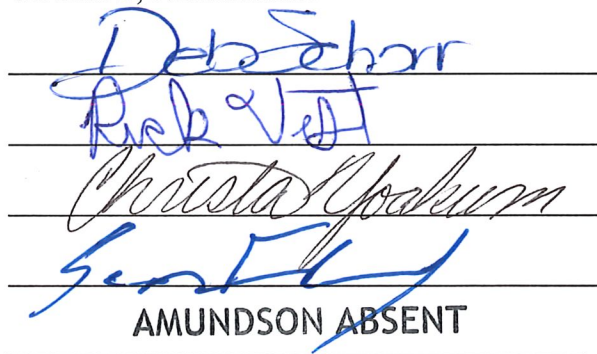 Deb Schorr
Rick Vest
Christa Yoakum
Sean
AMUNDSON ABSENT